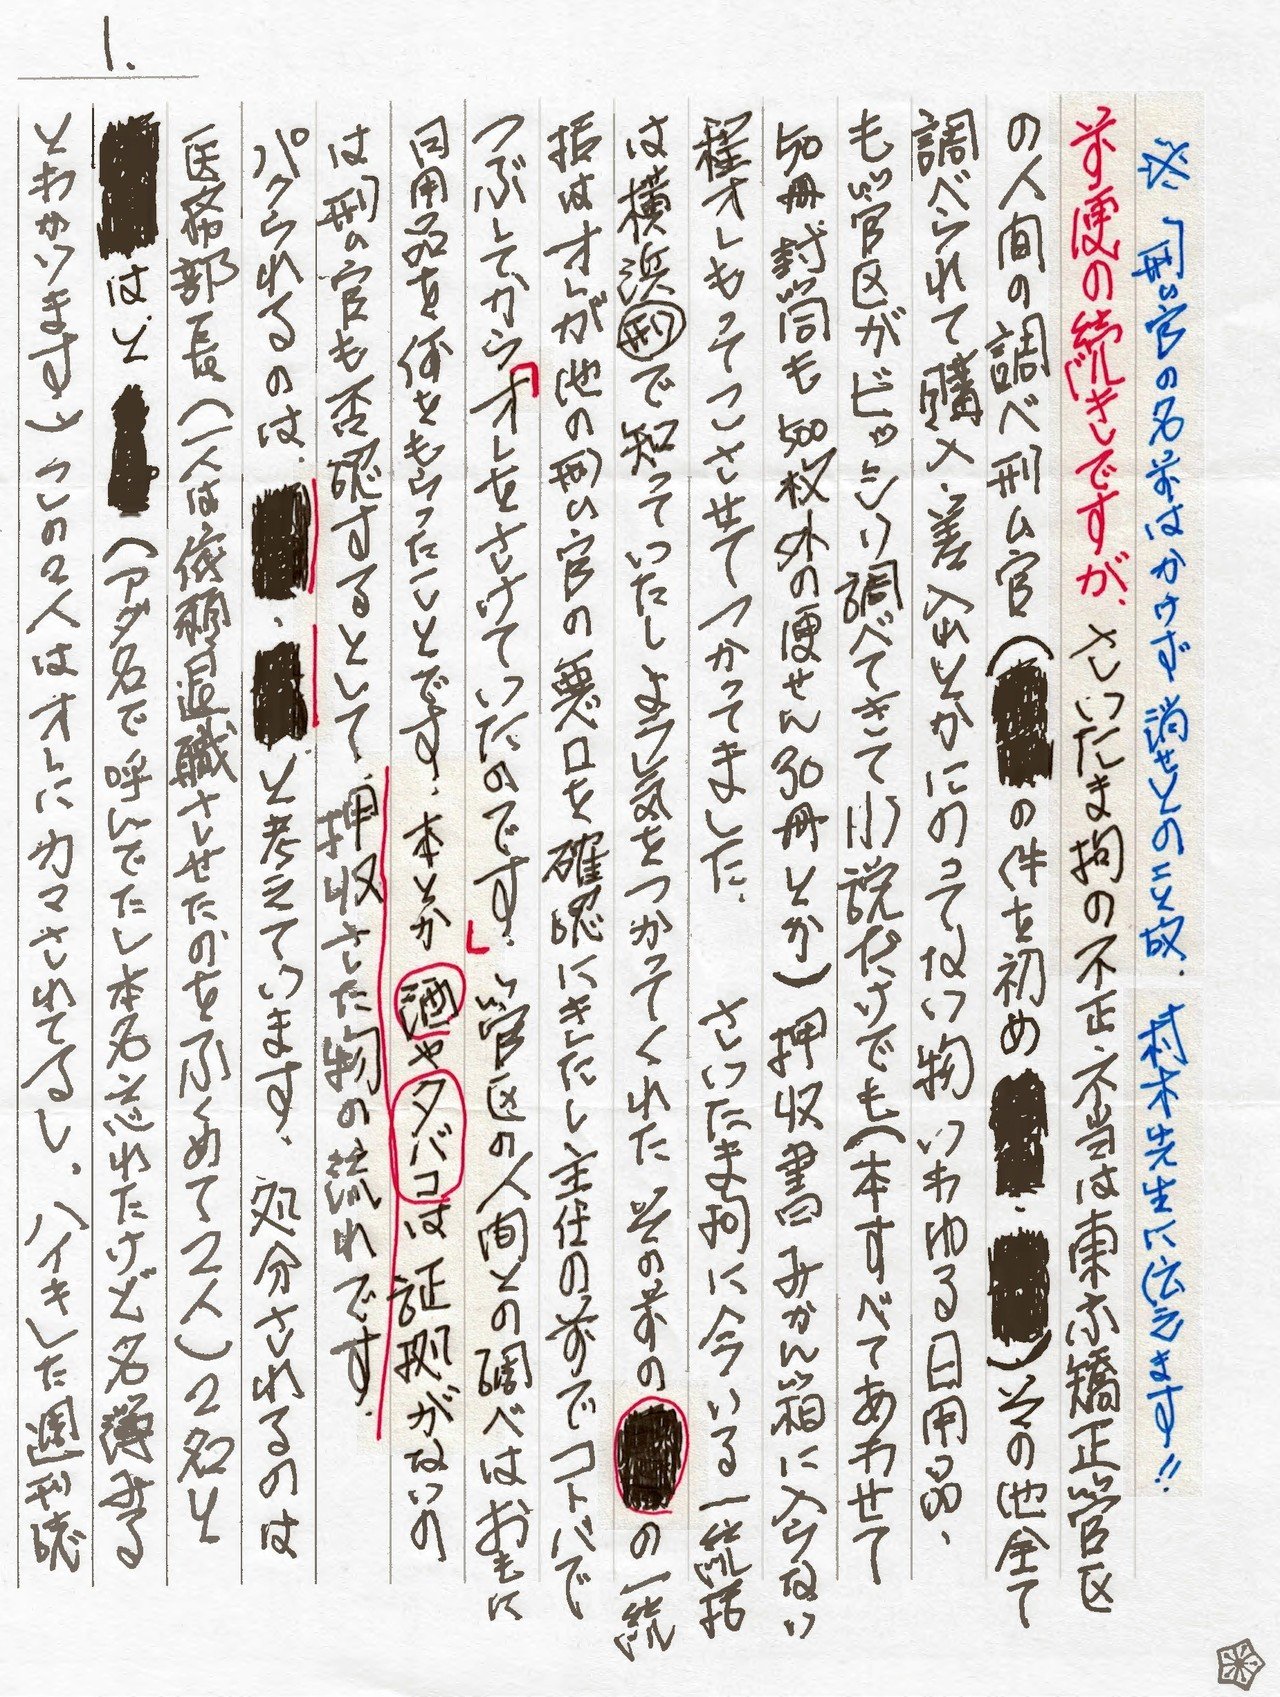 1.
※「刑ム官の名前はかけず消せとの事故、村木先生に伝えます!!
前便の続きしですが、さいたま拘の不正・不当は東京矯正管区
の人間の調べ刑ム官(の件を初め・)その他全て
調べられて購入、差入れとかにのってない物いわゆる日用品、
も管区がビッシリ調べてきて小説だけでも(本すべてあわせて
50冊封筒も500枚外の便せん30冊とか)押収書みかん箱に入らない
程オレもってこさせてつかってました。さいたま拘に今いる一統括
は横浜刑で知っていたしよう気をつかってくれたその前のの一統
括はオレが他の刑ム官の悪口を確認にきたし主任の前でコトバで
つぶしてから「オレをさけていたのです。」管区の人間との調べはおもに
日用品を何をもらったことです。本とか酒やタバコは証拠がないの
は刑ム官も否認するとして、押収された物の流れです。
パクられるのは、・と考えています。処分されるのは
医務部長(一人は依頼退職させたのをふくめて2人)2名と
はと(アダ名で呼んでたし本名忘れたけど名簿みる
とわかります)この2人はオレにカマされてるし、ハイキした週刊誌